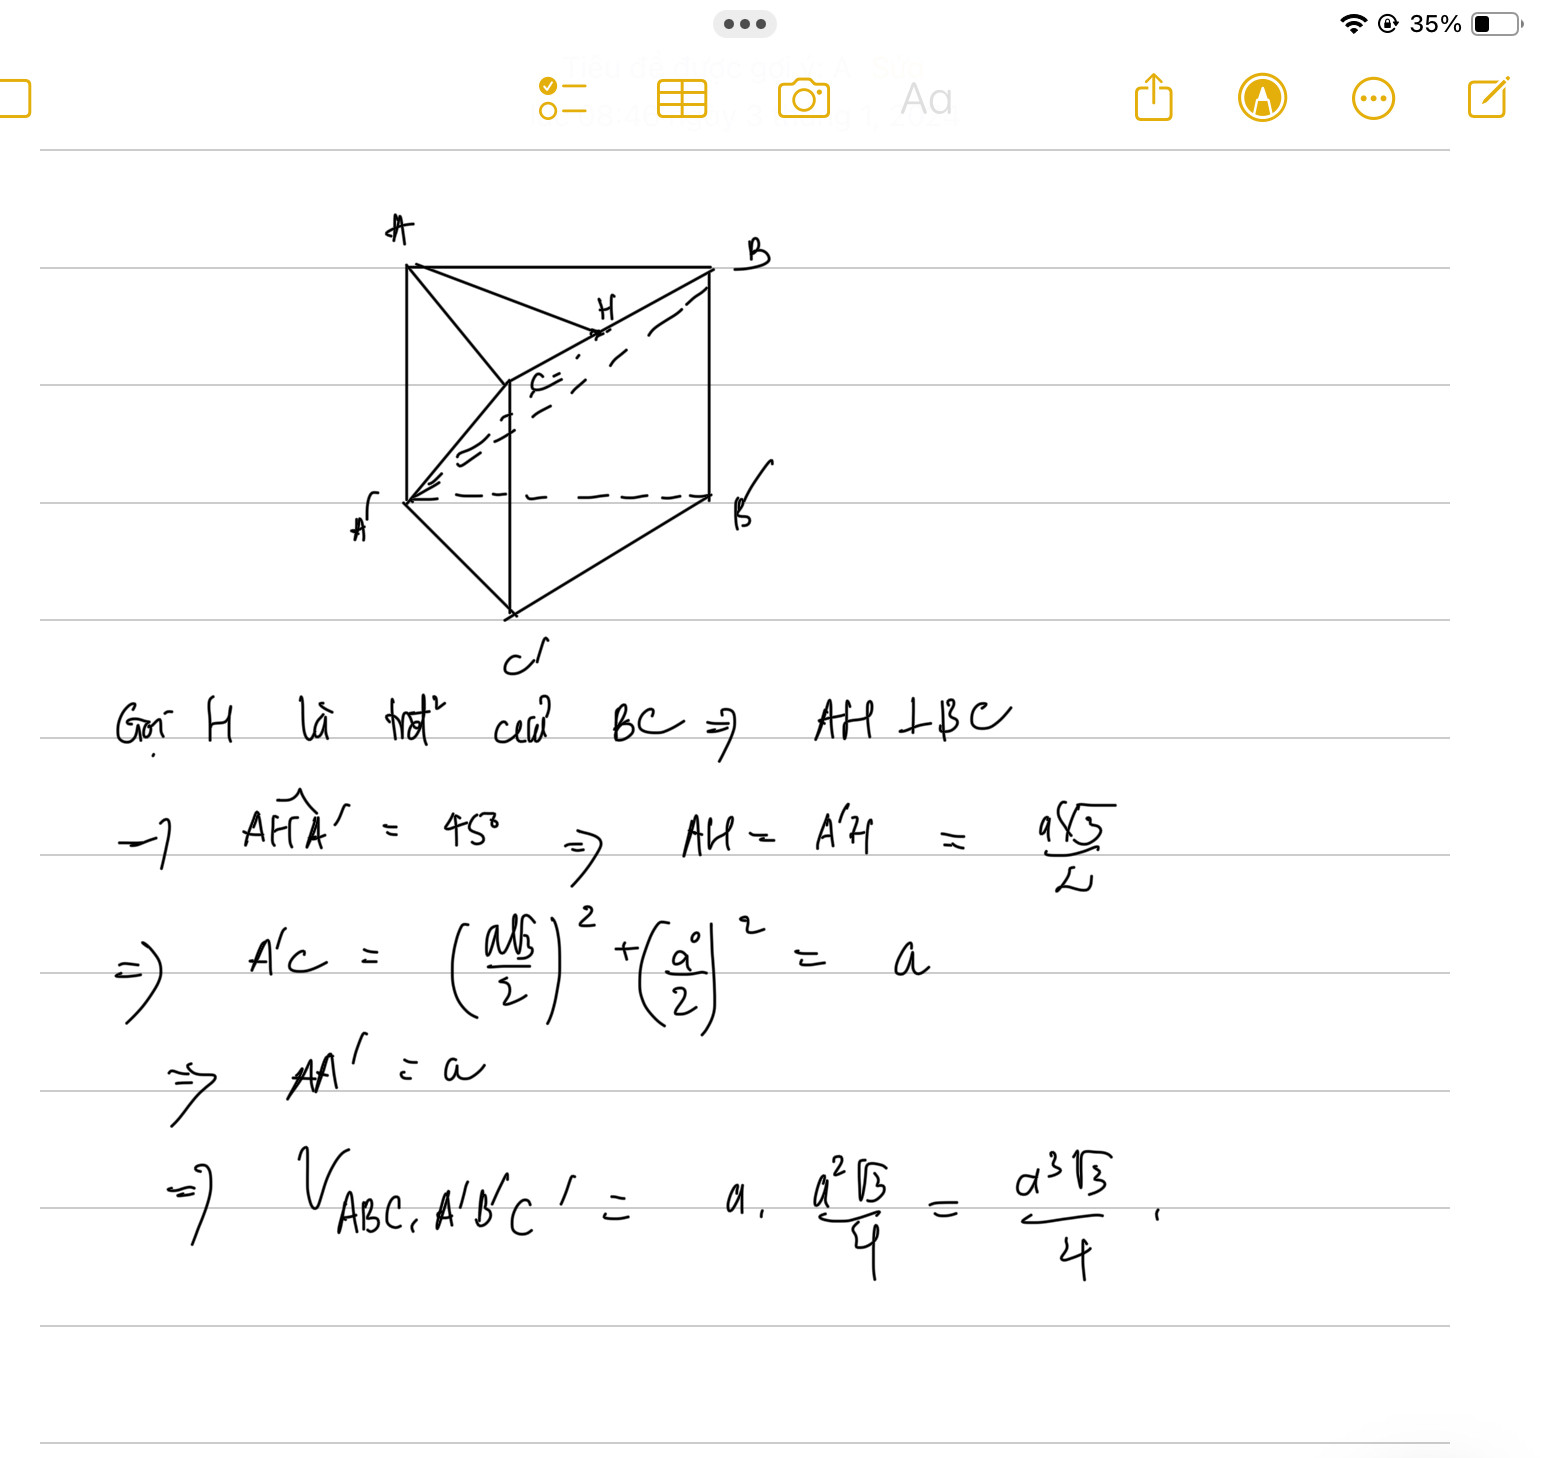 35%
Aa
A
B
H
C
A'
B'
C'
Gọi H là trđ² của BC => AH ⊥ BC
→ AHA' = 45° => AH = A'H = a√3/2
=> A'C = (a√3/2)² + (a/2)² = a
=> AA' = a
=> V ABC.A'B'C' = a. a²√3/4 = a³√3/4.